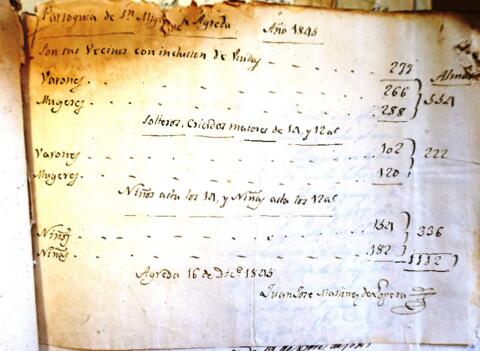 Parroquia de Sn Mig de Agreda Año 1845
Son sus Vecinos con inclusion de Viudas 273
Almas
Varones 266
Mugeres 288 554
Solteros, Criados maiores de 14, y 12 as
Varones 102 222
Mugeres 120
Niños asta los 14, y Niñas asta los 12 as
Niños 154 336
Niñas 182 1112
Agreda 16 de Dice 1845
Juan Jose Martinez de Lopera